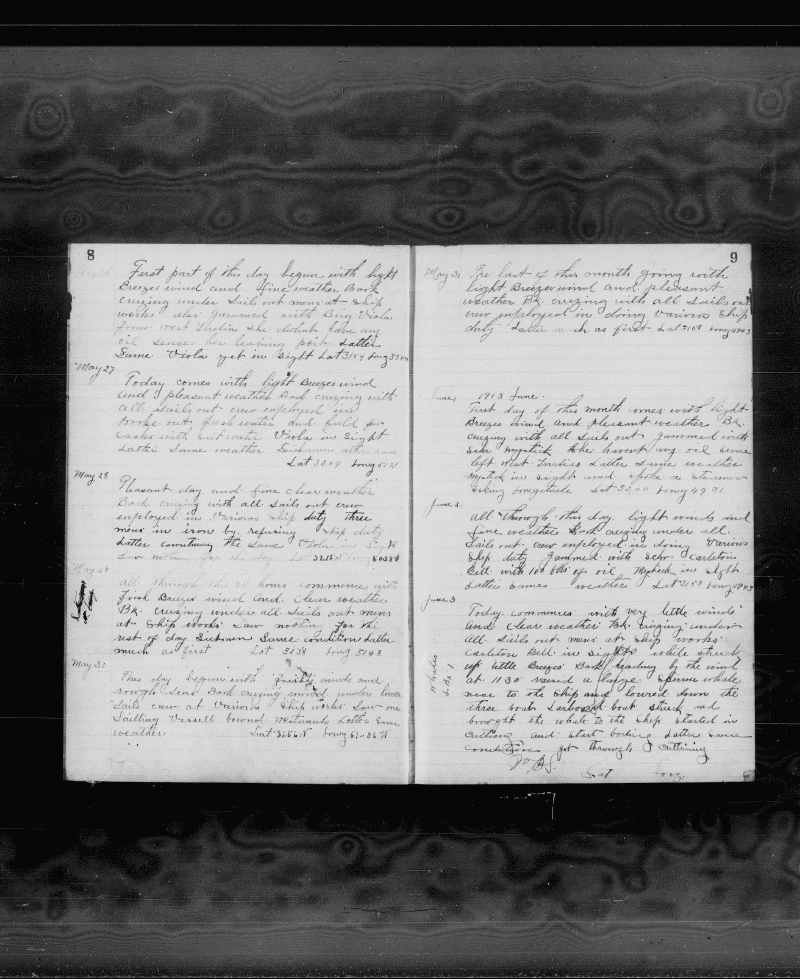 8
First part of this day begun with light
Breezes wind and fine weather Bark
cruzing under Sails out mens at Ship
works also gammed with Brig Viola
from West Indin she didnt have any
oil sence her leaving port Latter
Same Viola yet in Sight Lat 3154 Long
May 27
Today comes with light Breezes wind
And pleasant weather Bark cruzing with
all Sails out crew employed in
Broke out fresh water and full
casks with salt water Viola in Sight
Latter Same weather
Lat 3204 Long
May 28
Pleasant day and fine clear weather
Bark cruzing with all Sails out crew
employed in Various Ship duty three
mens in iron by refusing Ship duty
Latter countinuing the Same Viola in
Saw nothing for the day
May 29
all through this 24 hours commence with
Fresh Breeze wind And clear weather
Bk. cruzing under all Sails out mens
at Ship works Saw nothing for the
rest of day Sickmen Same condition Latter
much as first Lat 3138 Long 5143
May 30
This day begun with winds and
rough Seas Bark cruzing under lower
Sails crew at Various Ship works Saw one
Sailling Vessell bound westwards Latter Same
weather Lat Long
9
May 31 The last of this month going with
light Breezes wind and pleasant
weather Bk. cruzing with all Sails out
crew employed in doing Various Ship
duty Latter much as first Lat 3108 Long 4943
June 1 1913 June.
First day of this month comes with light
Breezes wind and pleasant weather Bk.
cruzing with all Sails out gammed with
Schr Mystick She havent any oil since
left West Indies Latter Same weather
Mystick in sight and Spoke a Steamer
asking Longitude Lat 3200 Long 49 31
June 2
All through this day light winds and
fine weather Bark cruzing under all
Sails out crew employed in doing Various
Ship duty gammed with Schr. Carleton
Bell with 100 bbls of oil Mystick in Sight
Latter Sames weather Lat 3159 Long 4943
June 3
Today commences with very little winds
And clear weather Bk. cruzing under
All Sails out mens at Ship works
Carleton Bell in sight while struck
up little Breezes Bark heading by the wind
at 1130 raised a large Sperm whale
near to the Ship and lowered down the
three boats Larboard boat struck and
brought the whale to the Ship Started in
cutting and Start boiling Latter Same
condition got through cutting
Lat Long